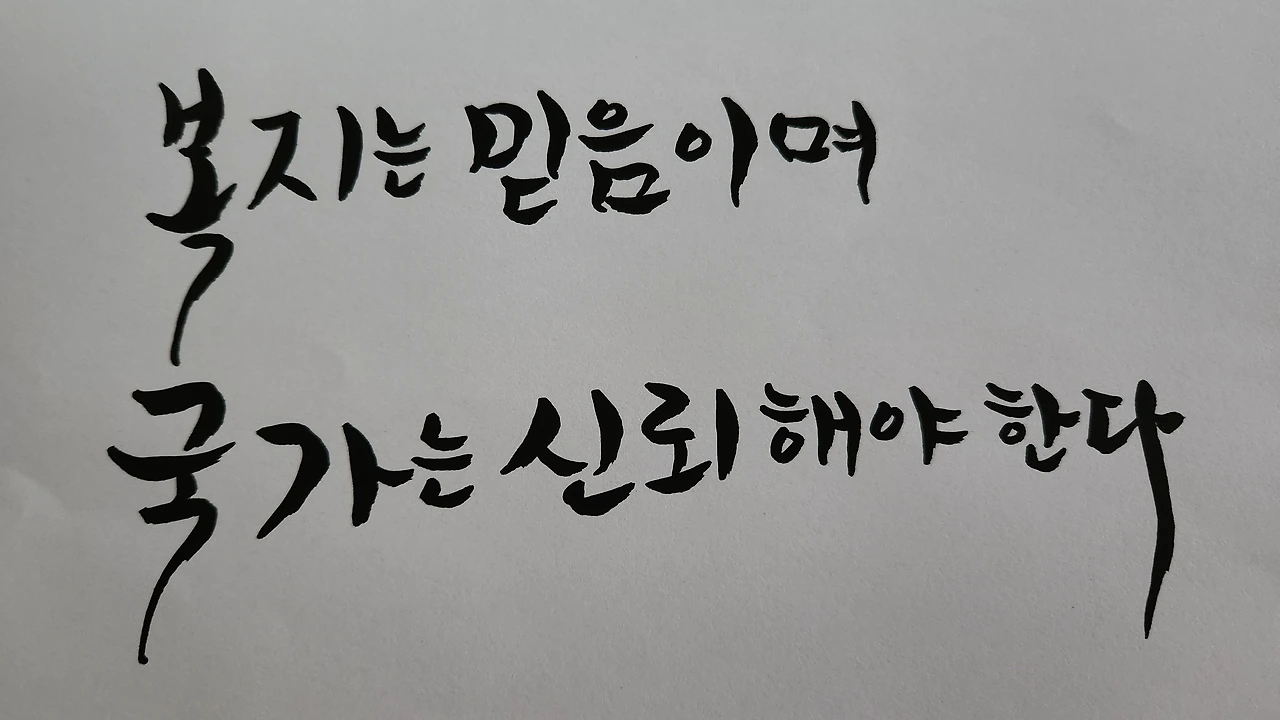 복지는 믿음이며
국가는 신뢰해야 한다